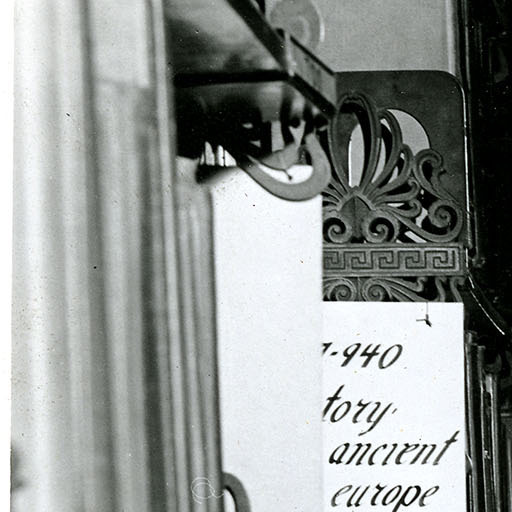 -940
tory,
ancient
europe